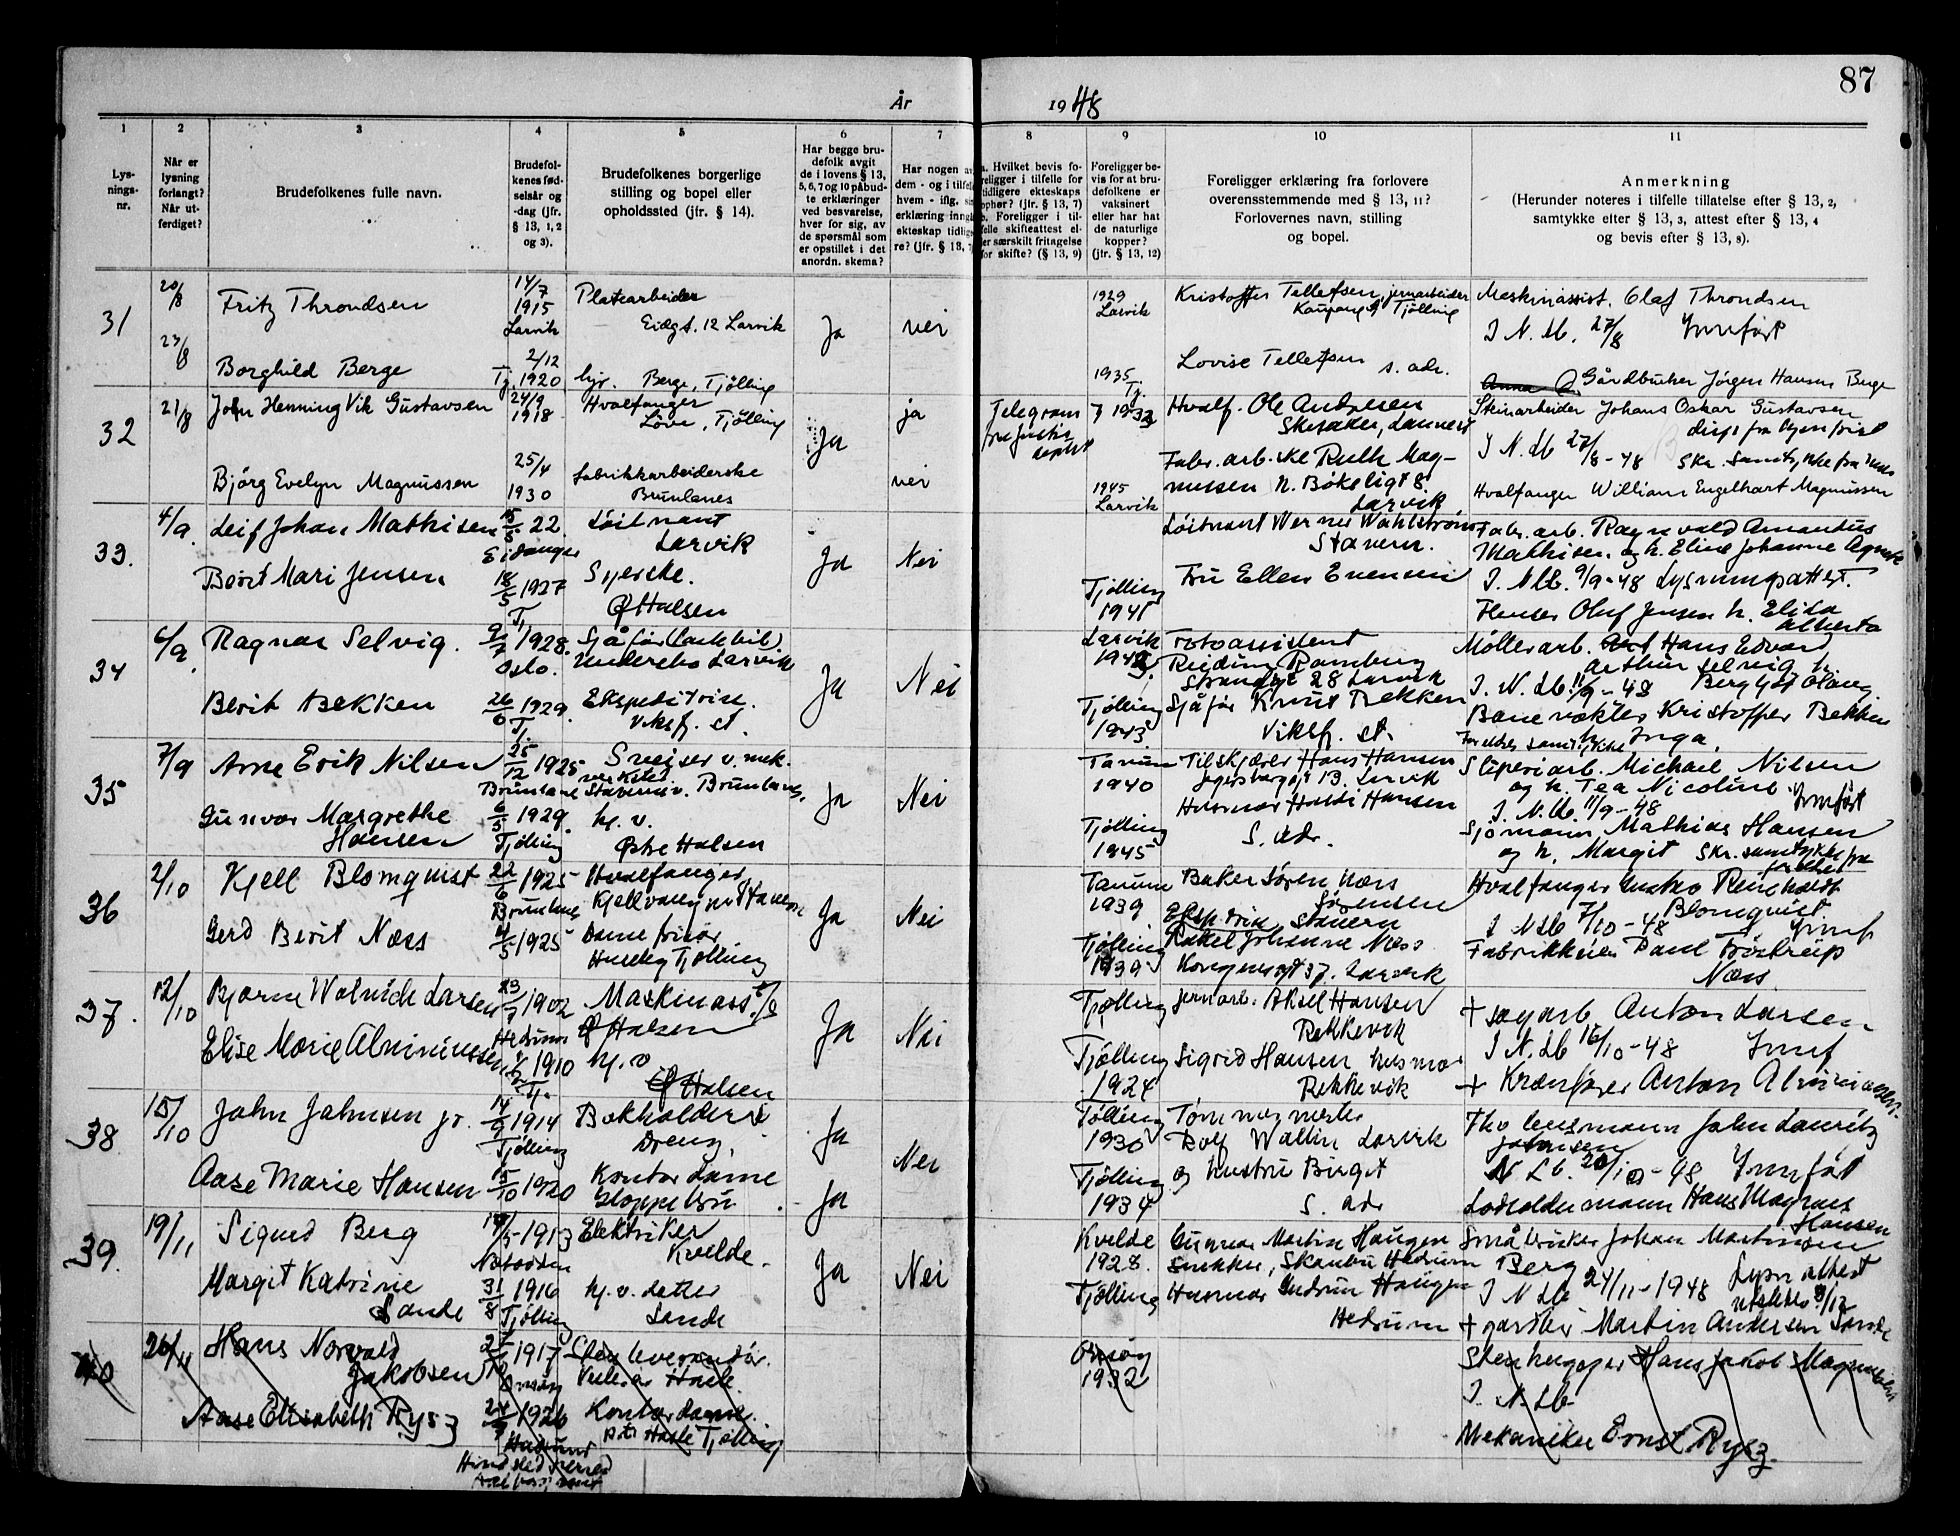 87
År 1948
1 2 3 4 5 6 7 8 9 10 11
Lys-
nings-
nr.
Når er
lysning
forlangt?
Når ut-
ferdiget?
Brudefolkenes fulle navn.
Brudefol-
kenes fød-
selsår og
-dag (jfr.
§ 13, 1, 2
og 3).
Brudefolkenes borgerlige
stilling og bopel eller
opholdssted (jfr. § 14).
Har begge bru-
defolk avgit
de i lovens § 13,
5, 6, 7 og 10 påbud-
te erklæringer
ved besvarelse,
hver for sig, av
de spørsmål som
er opstillet i det
anordn. skema?
Har nogen
dem - og i tilfel
hvem - iflg.
erklæring inng
ekteskap tidlig
re? (jfr. § 13, 7
a. Hvilket bevis fo-
religger i tilfelle for
tidligere ekteskaps
ophør? (jfr. § 13, 7)
Foreligger i til-
felle skifteattest el-
ler særskilt fritagelse
for skifte? (§ 13, 9)
Foreligger be-
vis for at bru-
defolkene er
vaksinert
eller har hat
de naturlige
kopper?
(jfr. § 13, 12)
Foreligger erklæring fra forlovere
overensstemmende med § 13, 11?
Forlovernes navn, stilling
og bopel.
Anmerkning
(Herunder noteres i tilfelle tillatelse efter § 13, 2,
samtykke efter § 13, 3, attest efter § 13, 4
og bevis efter § 13, 8).
31 20/8 Fritz Throndsen 14/7 1915 Larvik Platearbeider Eidgt. 12 Larvik Ja nei 1929 Larvik Kristoffer Tellefsen, jernarbeider Kaupang Tjølling Maskinassist. Olaf Throndsen
I N. Lb. 27/8 Innført
23/8 Borghild Berge 2/12 Tj. 1920 hjv. Berge, Tjølling 1935 Tj. Lovise Tellefsen s. adr. Gårdbruker Jørgen Hansen Berge
32 21/8 John Henning Vik Gustavsen 24/9 1918 Hvalfanger Løve, Tjølling Ja ja Telegram fra 1932 Hvalf. Ole Andresen Stenarbeider Johans Oskar Gustavsen
I N. Lb 27/8-48
Bjørg Evelyn Magnussen 25/4 1930 Fabrikkarbeiderske Brunlanes nei 1945 Larvik Fabr. arb. ske Ruth Mag-
nussen N. Bøkeligt 8 Larvik Hvalfanger William Engelhart Magnussen
33. 4/9 Leif Johan Mathisen 15/5 22. Eidanger Løitnant Larvik Ja Nei Løitnant Werner Wahlstrøm Stavern. Fabr. arb. Ragnvald Amandus
Mathisen og h. Eline Johanne Agnete
Berit Mari Jensen 18/5 1927 Tj Syerske. Ø Halsen Tjølling 1941 Fru Ellen Evensen I. N Lb. 9/9-48 Lysningsattest.
Oluf Jensen h. Elisa Alberta
34 6/9. Ragnar Selvig. 9/7 1928. Oslo. Sjåfør (lastebil) Undersbo Larvik Ja Nei Larvik Fotoassistent Reidun Ramberg Strandgt 28 Larvik Møllerarb. Hans Edvar
Arthur Selvig h. Bergljot Olaug.
I. N. Lb. 11/9-48
Berit Bekken 26/6 1929. Tj. Ekspeditrise. Viksf. st. Tjølling 1943. Sjåfør Knut Bekken Viksf. st. Banevokter Kristoffer Bekken
h. Inga.
35 7/9 Arne Erik Nilsen 25/12 1925 Brunlane Sveiser v. mek. verksted Brunlanes, Ja Nei Tanum 1940 Tilskjærer Hans Hansen 13. Larvik Sliperiarb. Michael Nilsen
og h. Tea Nicoline. Innført
I. N. Lb. 11/9-48
Gunvor Margrethe Hansen 6/5 1929. Tjølling hj. v. Østre Halsen Tjølling 1945 Husmor Hansen S. adr. Sjømann Mathias Hansen
og h. Margit Skr. samtykke fra
36 2/10 Kjell Blomquist 22/6 1925 Brunlanes Hvalfanger Ja Nei Tanum 1939 Baker Søren Næss Sørensen Stavern Hvalfanger Reinholdt
Blomquist.
I N Lb 7/10-48 Innf
Gerd Berit Næss 4/5 1925 Dame frisør Huseby Tjølling Tjølling 1939 Rakel Johanne Næss Kongensgt 37. Larvik Fabrikkeier Paul Trøstrup
Næss
37. 12/10 Bjarne Walnick Larsen 23/7 1902 Hedrum Maskinass. Ø Halsen Ja Nei Tjølling Jernarb. Aksel Hansen Rekkevik + sagarb. Anton Larsen
I N. Lb 16/10-48 Innf
Elise Marie Alminiussen 1910 Tj. hj. v. Ø Halsen Tjølling 1924 Sigrid Hansen husmor Rekkevik + Kranfører Anton Alminiussen.
38 15/10 John Johnsen jr. 14/9 1914 Tjølling Bokholder Ja Nei Tjølling 1930 Rolf Wallin Larvik John Lauritz
Johnsen
N Lb. 20/10-48 Innført
Aase Marie Hansen 15/10 1920 Kontordame Kloppebru Ja Tjølling 1934 og hustru Birgit S. adr Lodsoldermann Hans Magnus
Hansen
39. 19/11 Sigurd Berg 1913 Notodden Elektriker Kvelde. Ja Nei Kvelde 1928. Gunnar Martin Haugen Hedrum Småbruker Johan Martinsen
Berg
I N Lb 24/11-1948
Margit Katrine Sande 31/8 1916 Tjølling hj. v. datter Sande Tjølling Husmor Gudrun Haugen Hedrum + gartner Martin Andersen Sande
40 26/11 Hans Norvald Jakobsen 1917 Onsøy Stenleverandør. Hasle. Onsøy 1932 Stenhugger Hans Jakob
I. N. Lb
Aase Elisabeth Rysz 24/9 1926 Kontordame. pt. Hasle Tjølling Mekaniker Ernst Rysz.